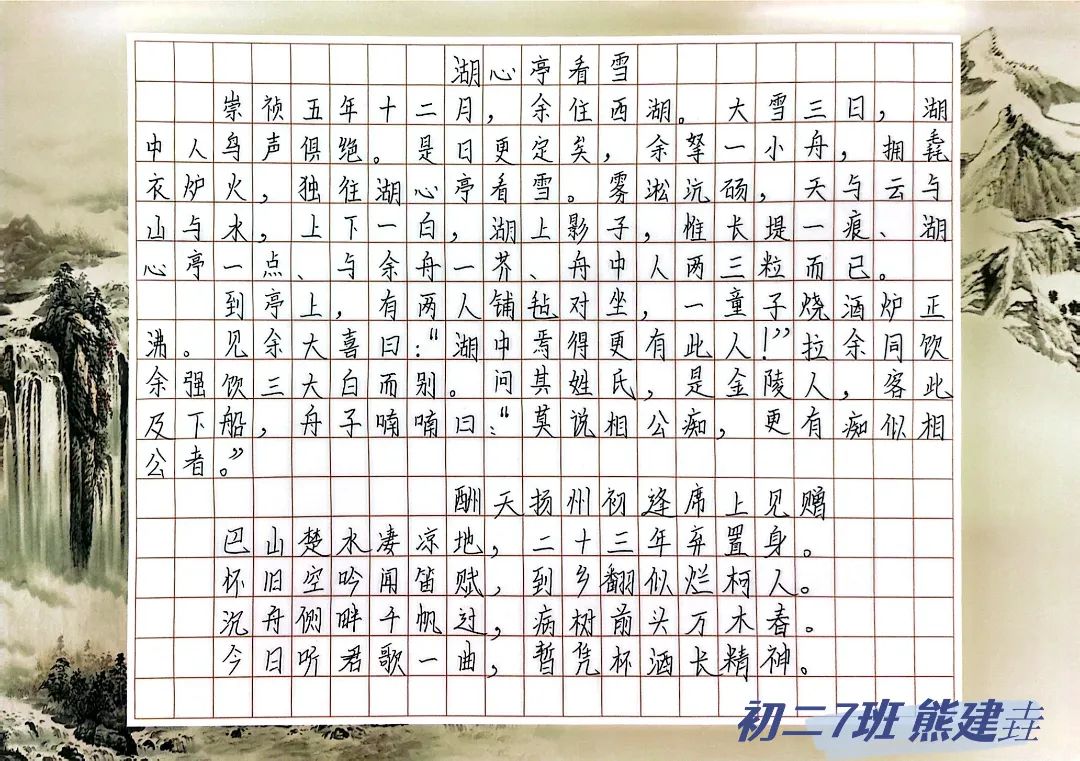 湖心亭看雪
崇祯五年十二月，余住西湖。大雪三日，湖
中人鸟声俱绝。是日更定矣，余拏一小舟，拥毳
衣炉火，独往湖心亭看雪。雾凇沆砀，天与云与
山与水，上下一白，湖上影子，惟长堤一痕、湖
心亭一点、与余舟一芥、舟中人两三粒而已。
到亭上，有两人铺毡对坐，一童子烧酒炉正
沸。见余大喜曰：“湖中焉得更有此人！”拉余同饮
余强饮三大白而别。问其姓氏，是金陵人，客此
及下船，舟子喃喃曰：“莫说相公痴，更有痴似相
公者。”
酬天扬州初逢席上见赠
巴山楚水凄凉地，二十三年弃置身。
怀旧空吟闻笛赋，到乡翻似烂柯人。
沉舟侧畔千帆过，病树前头万木春。
今日听君歌一曲，暂凭杯酒长精神。
初二7班 熊建玤